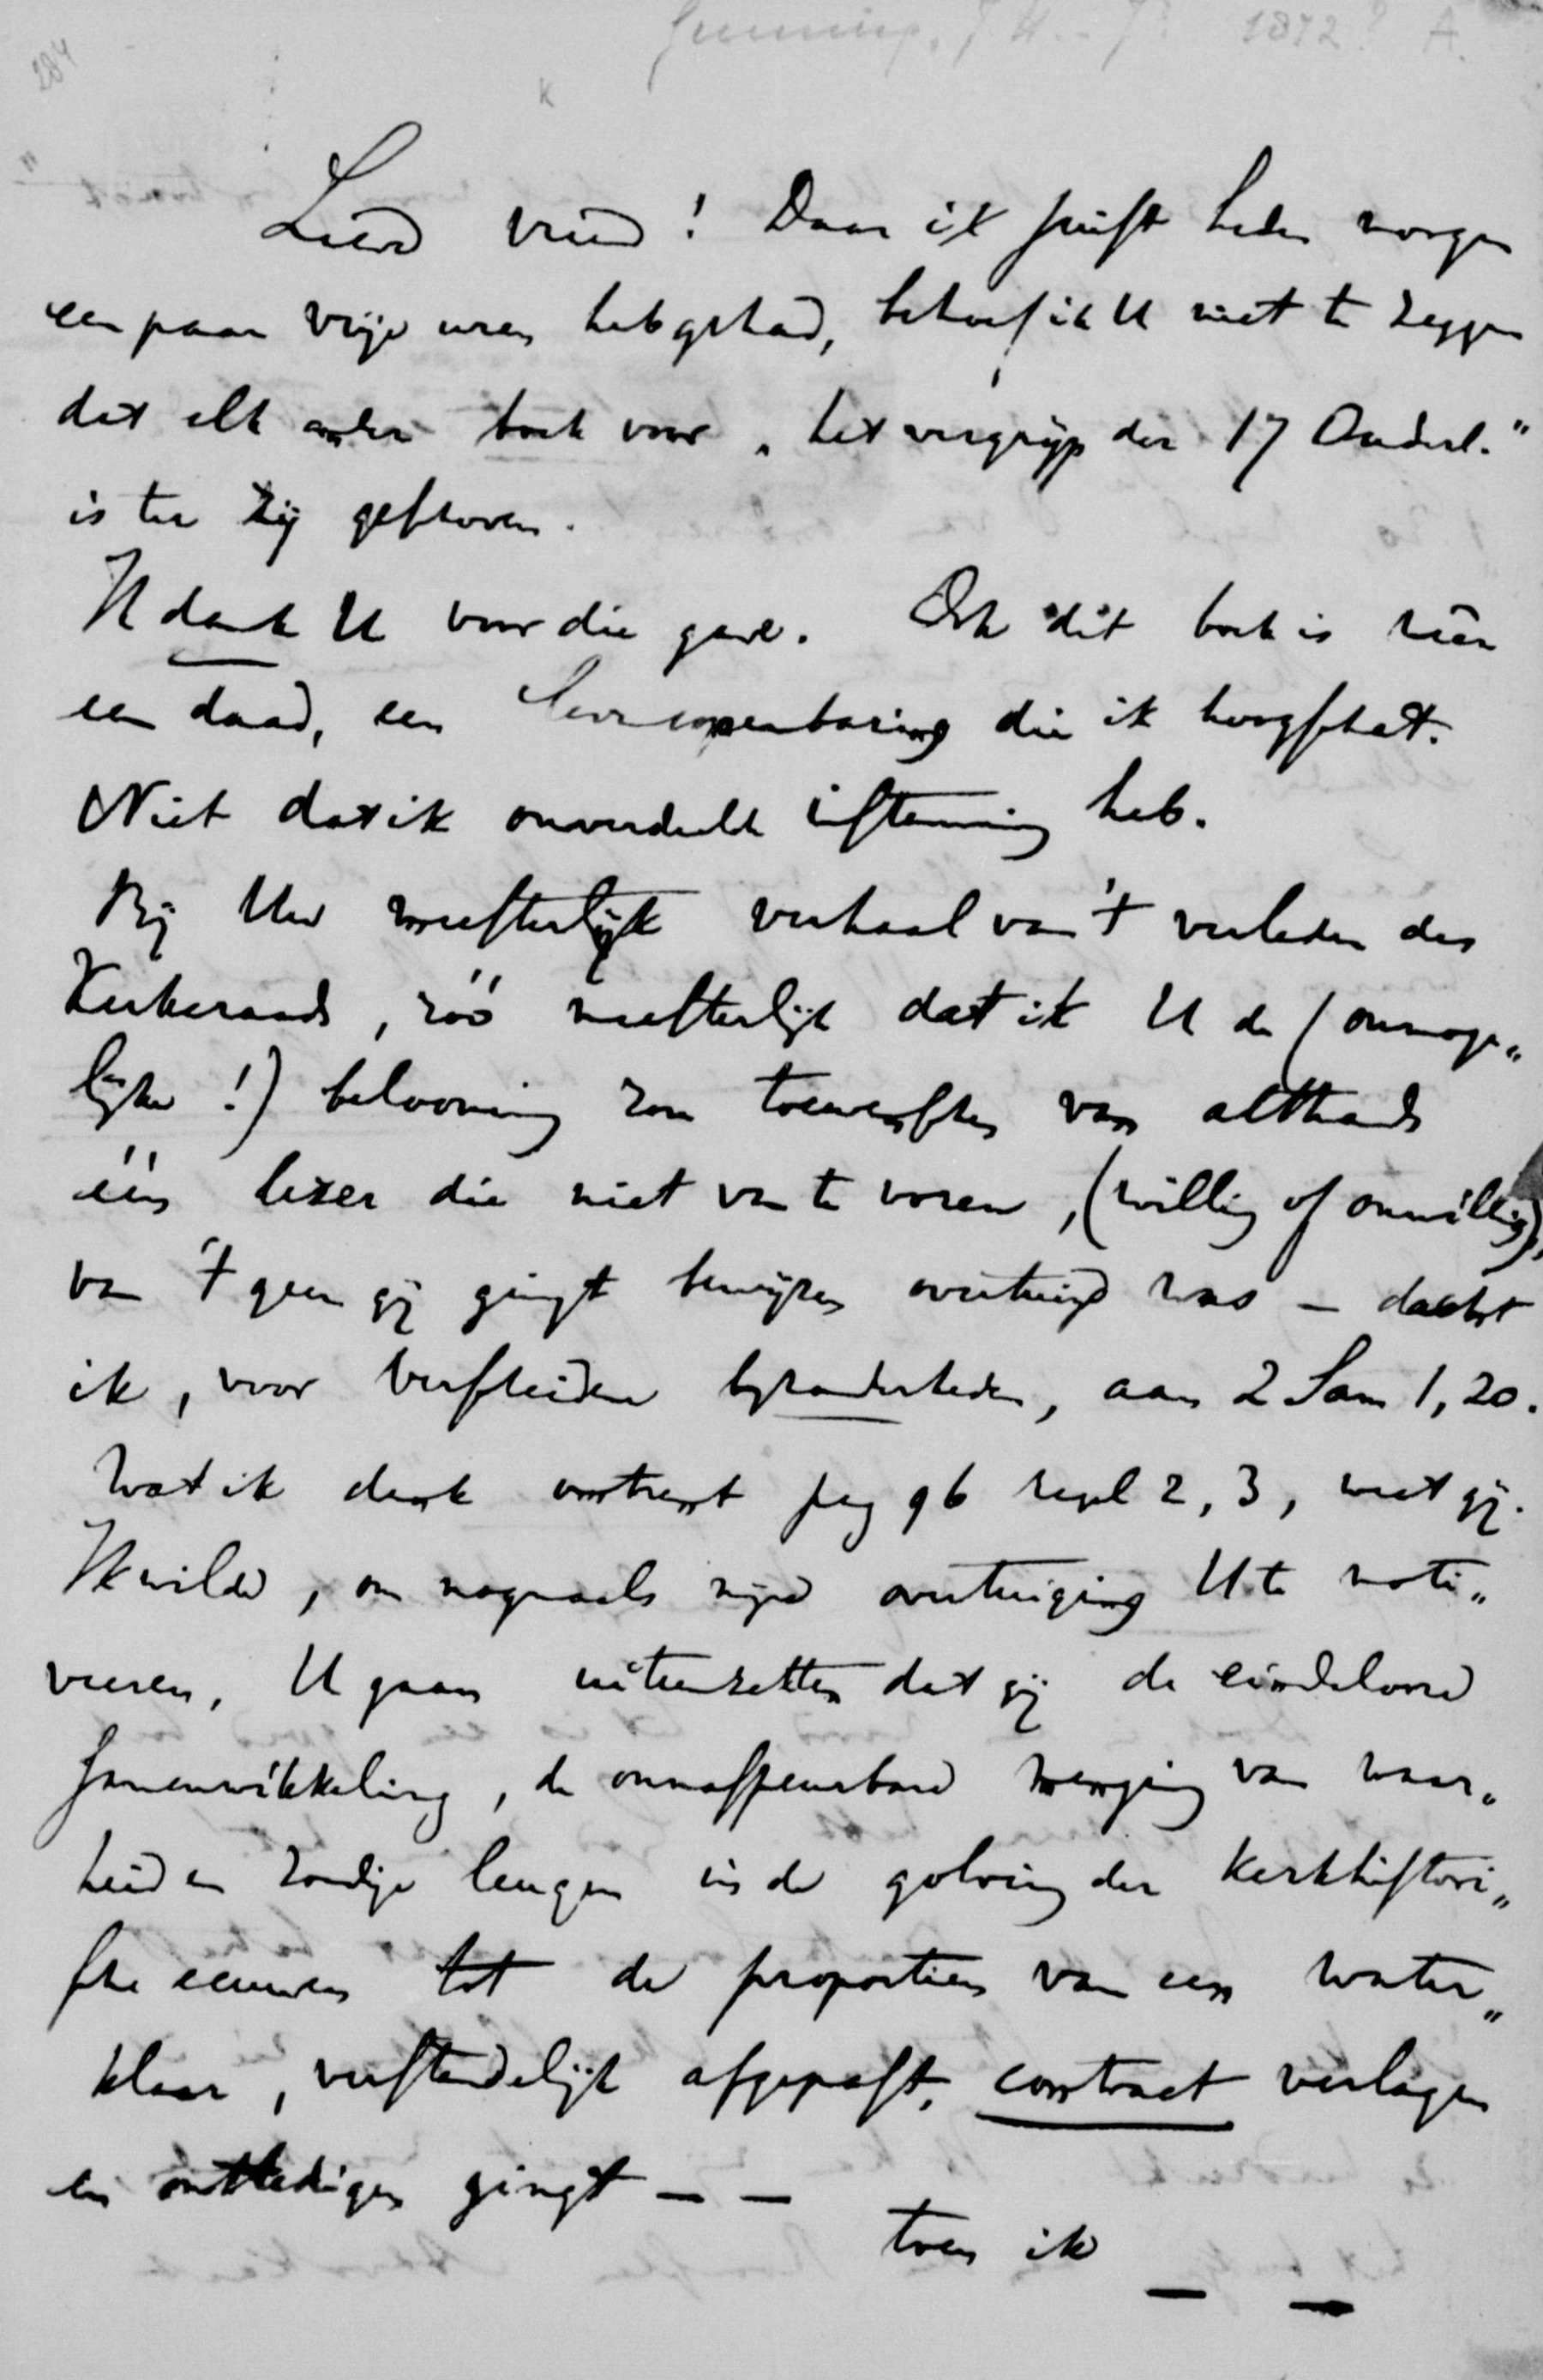 Gunning, J.H. - Jr. 1872? A.
284
Lieve vriend! Daar ik juist heden morgen
een paar vrije uren heb gehad, behoef ik U niet te zeggen
dat elk ander boek voor „het vergrijp der 17 Ouderl.”
is ter zij geschoven.
Ik dank U voor die gave. Ook dit boek is weer
een daad, een levensopenbaring die ik hoogschat.
Niet dat ik onverdeelde instemming heb.
Bij Uw meesterlijk verhaal van 't verleden des
Kerkeraads, zóó meesterlijk dat ik U de (onmoge„
lijke!) belooning zou toewenschen van althands
één lezer die niet van te voren, (willig of onwillig),
van 't geen gij gingt bewijzen overtuigd was – dacht
ik, voor verscheidene bijzonderheden, aan 2 Sam 1, 20.
Wat ik denk omtrent pag 96 regel 2, 3, weet gij.
Ik wilde, om nogmaals mijne overtuiging U te moti„
veeren, U gaan uiteenzetten dat gij de eindelooze
samenwikkeling, de onnaspeurbare menging van waar„
heid en zondige leugen in de golving der kerkhistori„
sche eeuwen tot de proportien van een water„
klaar, verstandelijk afgepast, contract verlagen
en ontledigen gingt – –
toen ik – –